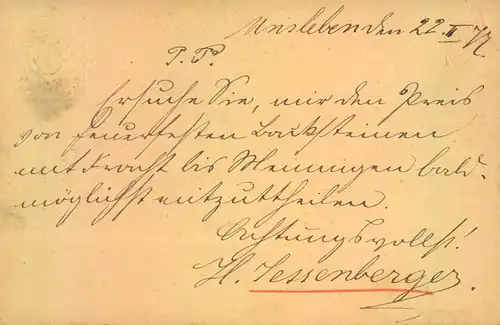 Unsleben den 22. II 77
P. P.
Ersuche Sie, mir den Preis
von feuerfesten Backsteinen
mit Fracht bis Meiningen bald-
möglichst mitzutheilen.
Achtungsvollst!
H. Tessenberger